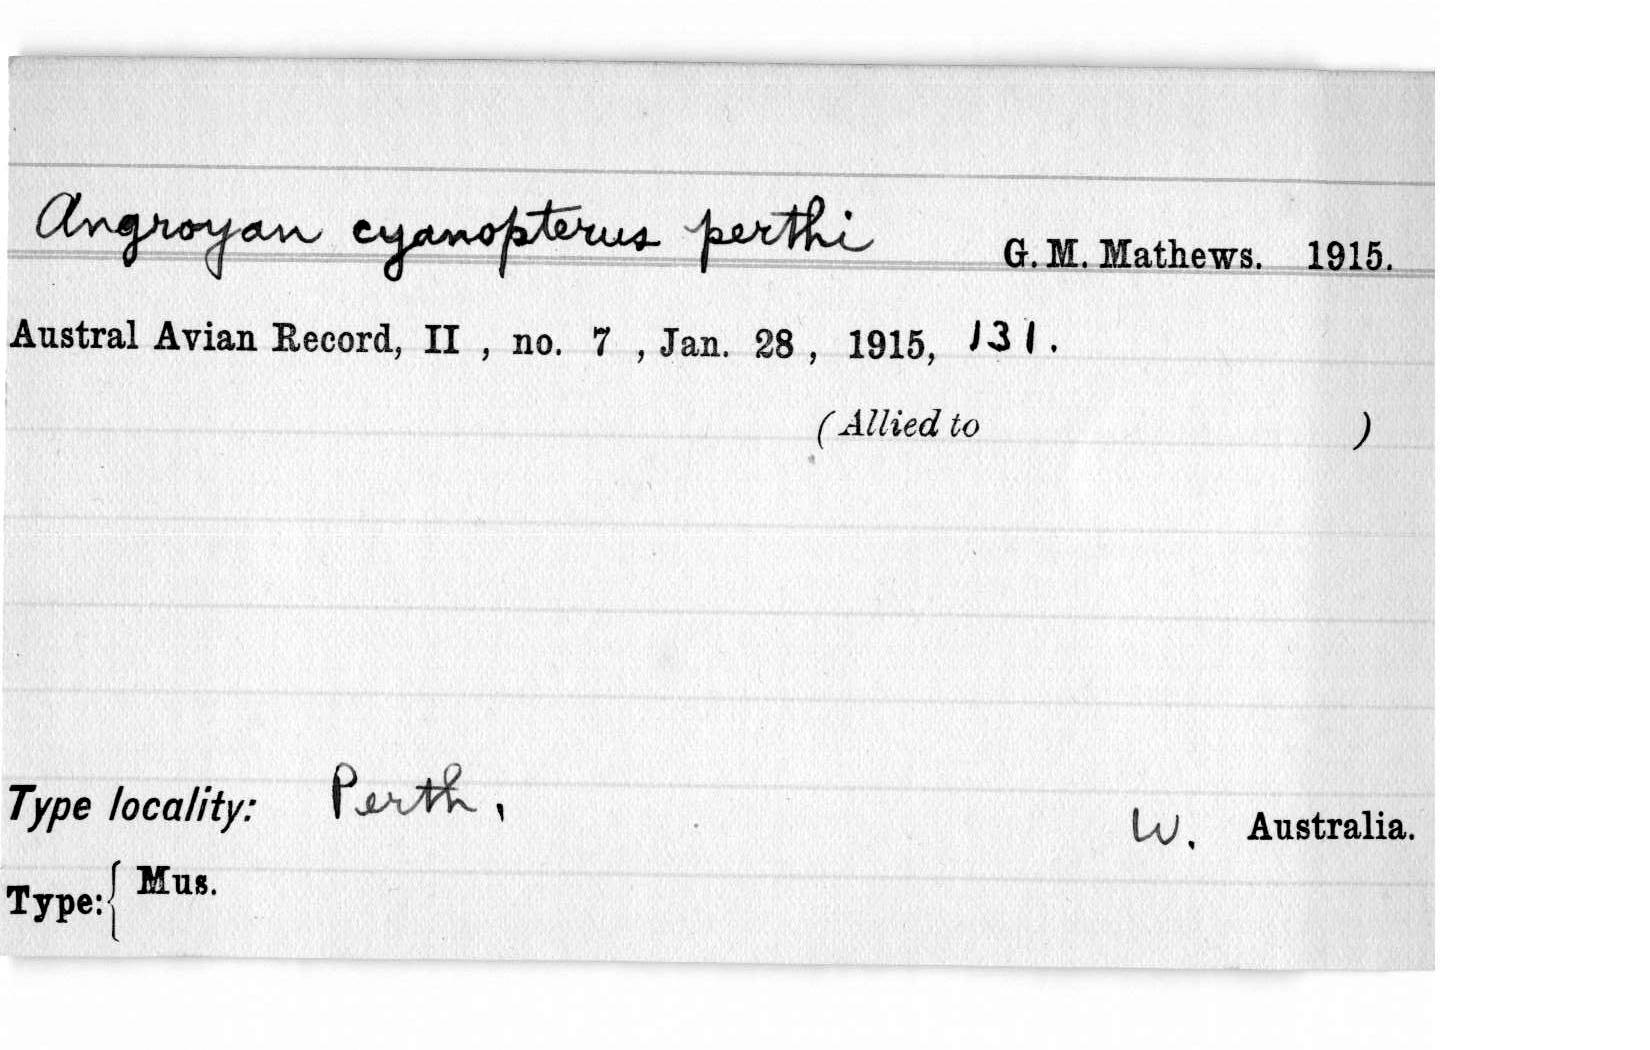 Angroyan cyanopterus perthi G. M. Mathews. 1915.
Austral Avian Record, II , no. 7 , Jan. 28 , 1915, 131.
(Allied to )
Type locality: Perth, W. Australia.
Type:{ Mus.